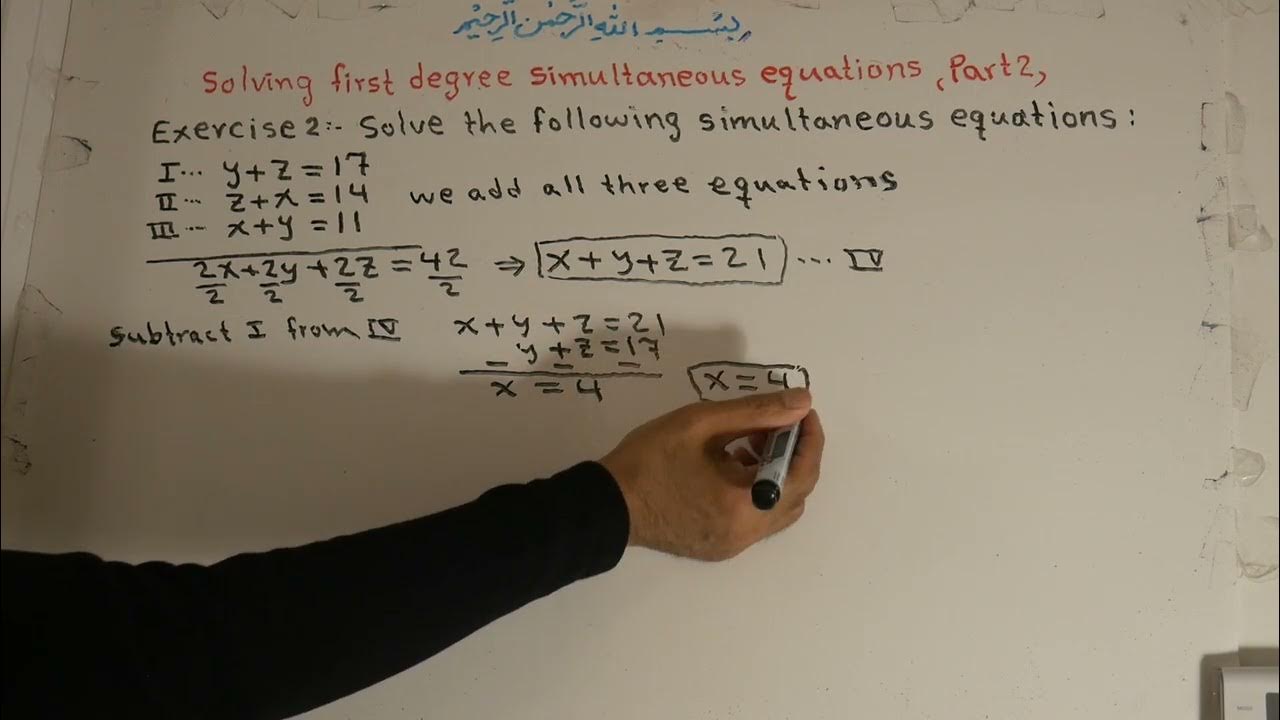 بِسْمِ اللهِ الرَّحْمٰنِ الرَّحِيْمِ
Solving first degree simultaneous equations, Part 2,
Exercise 2:- Solve the following simultaneous equations:
I... y+z=17
II... z+x=14 we add all three equations
III... x+y=11
2x/2+2y/2+2z/2=42/2 ⇒ x+y+z=21 ... IV
subtract I from IV x+y+z=21
_ y±z=17
x=4 x=4